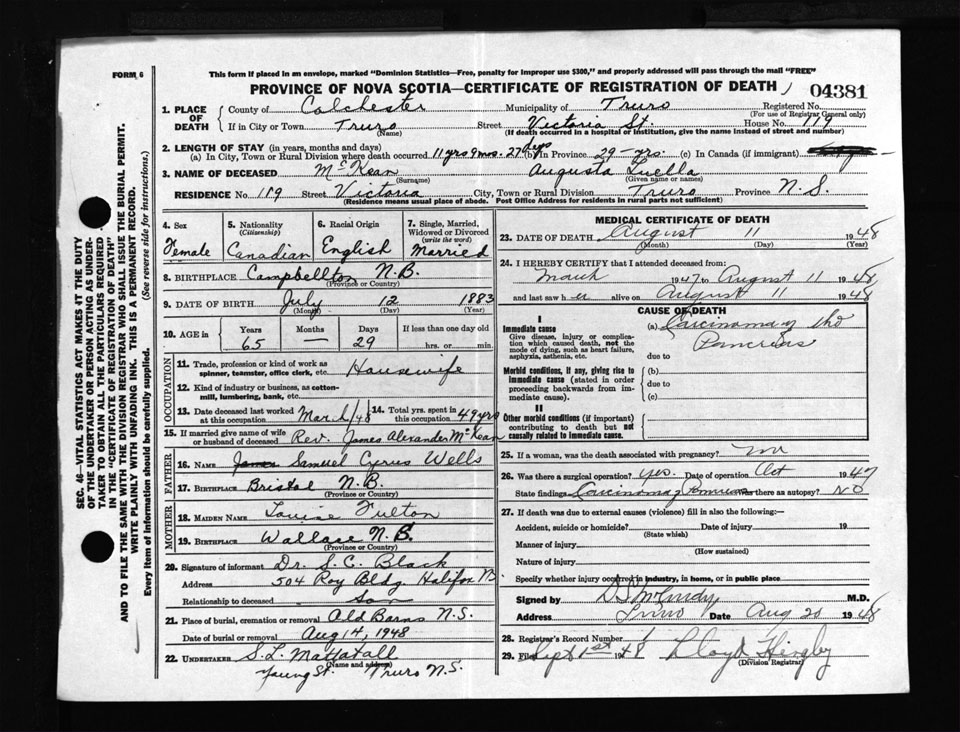 FORM 6
This form if placed in an envelope, marked "Dominion Statistics—Free, penalty for improper use $300," and properly addressed will pass through the mail "FREE"
PROVINCE OF NOVA SCOTIA—CERTIFICATE OF REGISTRATION OF DEATH
04381
1. PLACE OF DEATH
County of Colchester Municipality of Truro Registered No.
(For use of Registrar General only)
If in City or Town Truro Street Victoria St. House No. 119
(Name) (If death occurred in a hospital or institution, give the name instead of street and number)
2. LENGTH OF STAY (in years, months and days)
(a) In City, Town or Rural Division where death occurred 11 yrs 9 mos. 27 days (b) In Province 29 – yrs. (c) In Canada (if immigrant)
3. NAME OF DECEASED McKean Augusta Luella
(Surname) (Given name or names)
RESIDENCE No. 119 Street Victoria City, Town or Rural Division Truro Province N.S.
(Residence means usual place of abode. Post Office Address for residents in rural parts not sufficient)
4. Sex
Female
5. Nationality
(Citizenship)
Canadian
6. Racial Origin
English
7. Single, Married, Widowed or Divorced
(write the word)
Married
8. BIRTHPLACE Campbellton N.B.
(Province or Country)
9. DATE OF BIRTH July 12 1883
(Month) (Day) (Year)
10. AGE in
Years Months Days If less than one day
65 — 29 hrs. or min.
OCCUPATION
11. Trade, profession or kind of work as spinner, teamster, office clerk, etc. Housewife
12. Kind of industry or business, as cotton-mill, lumbering, bank, etc.
13. Date deceased last worked at this occupation March/48
14. Total yrs. spent in this occupation 49 yrs
15. If married give name of wife or husband of deceased Rev. James Alexander McKean
FATHER
16. NAME James Samuel Cyrus Wells
17. BIRTHPLACE Bristol N.B.
(Province or Country)
MOTHER
18. MAIDEN NAME Louise Fulton
19. BIRTHPLACE Wallace N.B.
(Province or Country)
20. Signature of informant Dr. S. C. Black
Address 504 Roy Bldg. Halifax
Relationship to deceased Son
21. Place of burial, cremation or removal Old Barns N.S.
Date of burial or removal Aug 14, 1948
22. UNDERTAKER S. L. Mattatall
(Name and address)
Young St. Truro N.S.
MEDICAL CERTIFICATE OF DEATH
23. DATE OF DEATH August 11 1948
(Month) (Day) (Year)
24. I HEREBY CERTIFY that I attended deceased from:
March 1947 to August 11 1948
and last saw her alive on August 11 1948
CAUSE OF DEATH
I
Immediate cause
Give disease, injury or complication which caused death, not the mode of dying, such as heart failure, asphyxia, asthenia, etc.
(a) Carcinoma of the
Pancreas
due to
Morbid conditions, if any, giving rise to immediate cause (stated in order proceeding backwards from immediate cause).
(b)
due to
(c)
II
Other morbid conditions (if important) contributing to death but not causally related to immediate cause.
25. If a woman, was the death associated with pregnancy? no
26. Was there a surgical operation? yes. Date of operation Oct 1947
State findings Carcinoma of Pancreas Was there an autopsy? No
27. If death was due to external causes (violence) fill in also the following:—
Accident, suicide or homicide? Date of injury 19
(State which)
Manner of injury
(How sustained)
Nature of injury
Specify whether injury occurred in industry, in home, or in public place
Signed by D S McCurdy M.D.
Address Truro Date Aug 20 1948
28. Registrar's Record Number
29. Filed Sept 1st 1948 Lloyd
(Division Registrar)
SEC. 46—VITAL STATISTICS ACT MAKES IT THE DUTY
OF THE UNDERTAKER OR PERSON ACTING AS UNDER-
TAKER TO OBTAIN ALL THE PARTICULARS REQUIRED
IN THE "CERTIFICATE OF REGISTRATION OF DEATH"
AND TO FILE THE SAME WITH THE DIVISION REGISTRAR WHO SHALL ISSUE THE BURIAL PERMIT.
WRITE PLAINLY WITH UNFADING INK. THIS IS A PERMANENT RECORD.
Every item of information should be carefully supplied. (See reverse side for instructions.)